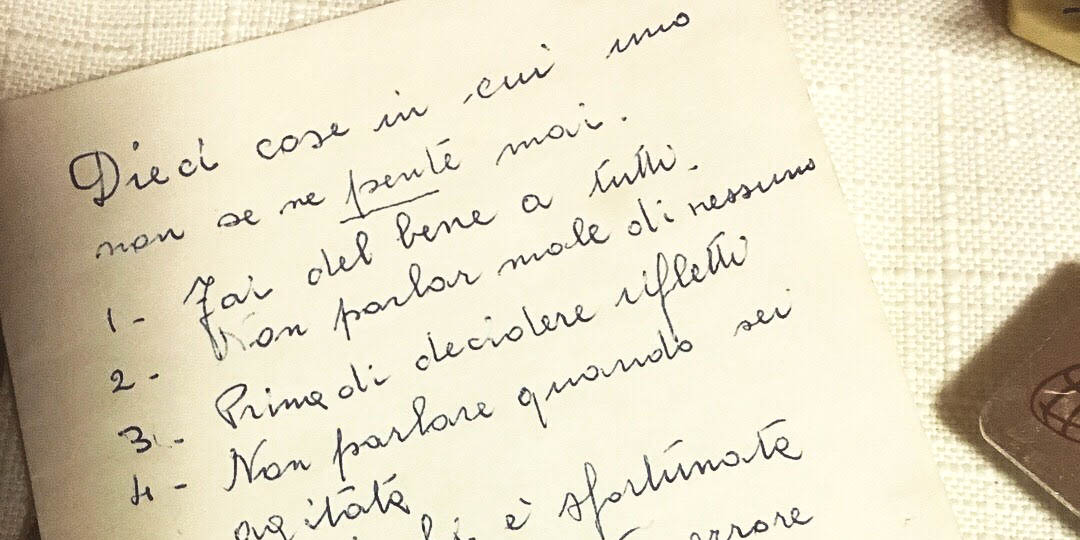 Dieci cose in cui uno
non se ne pente mai.
1- Far del bene a tutti.
2- Non parlar male di nessuno
3- Prima di decidere rifletti
4- Non parlare quando sei
agitata
è sfortunata
errore